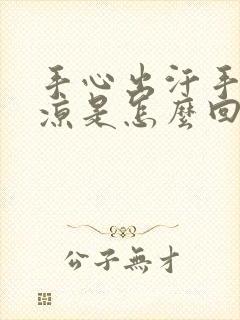 手心出汗手
凉是怎麼回
公子無才